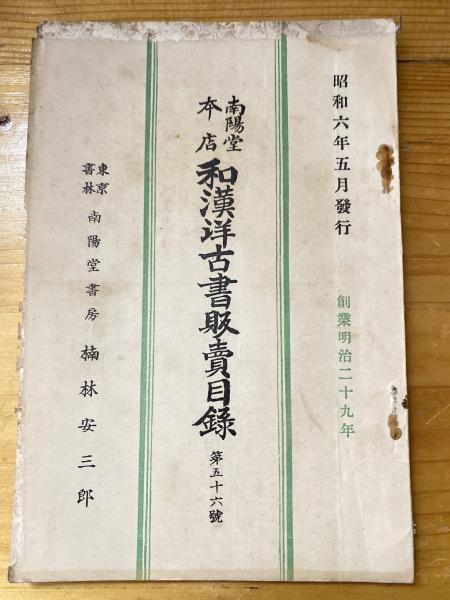 昭和六年五月發行
創業明治二十九年
南陽堂本店
和漢洋古書販賣目錄
第五十六號
東京書林
南陽堂書房
楠林安三郎